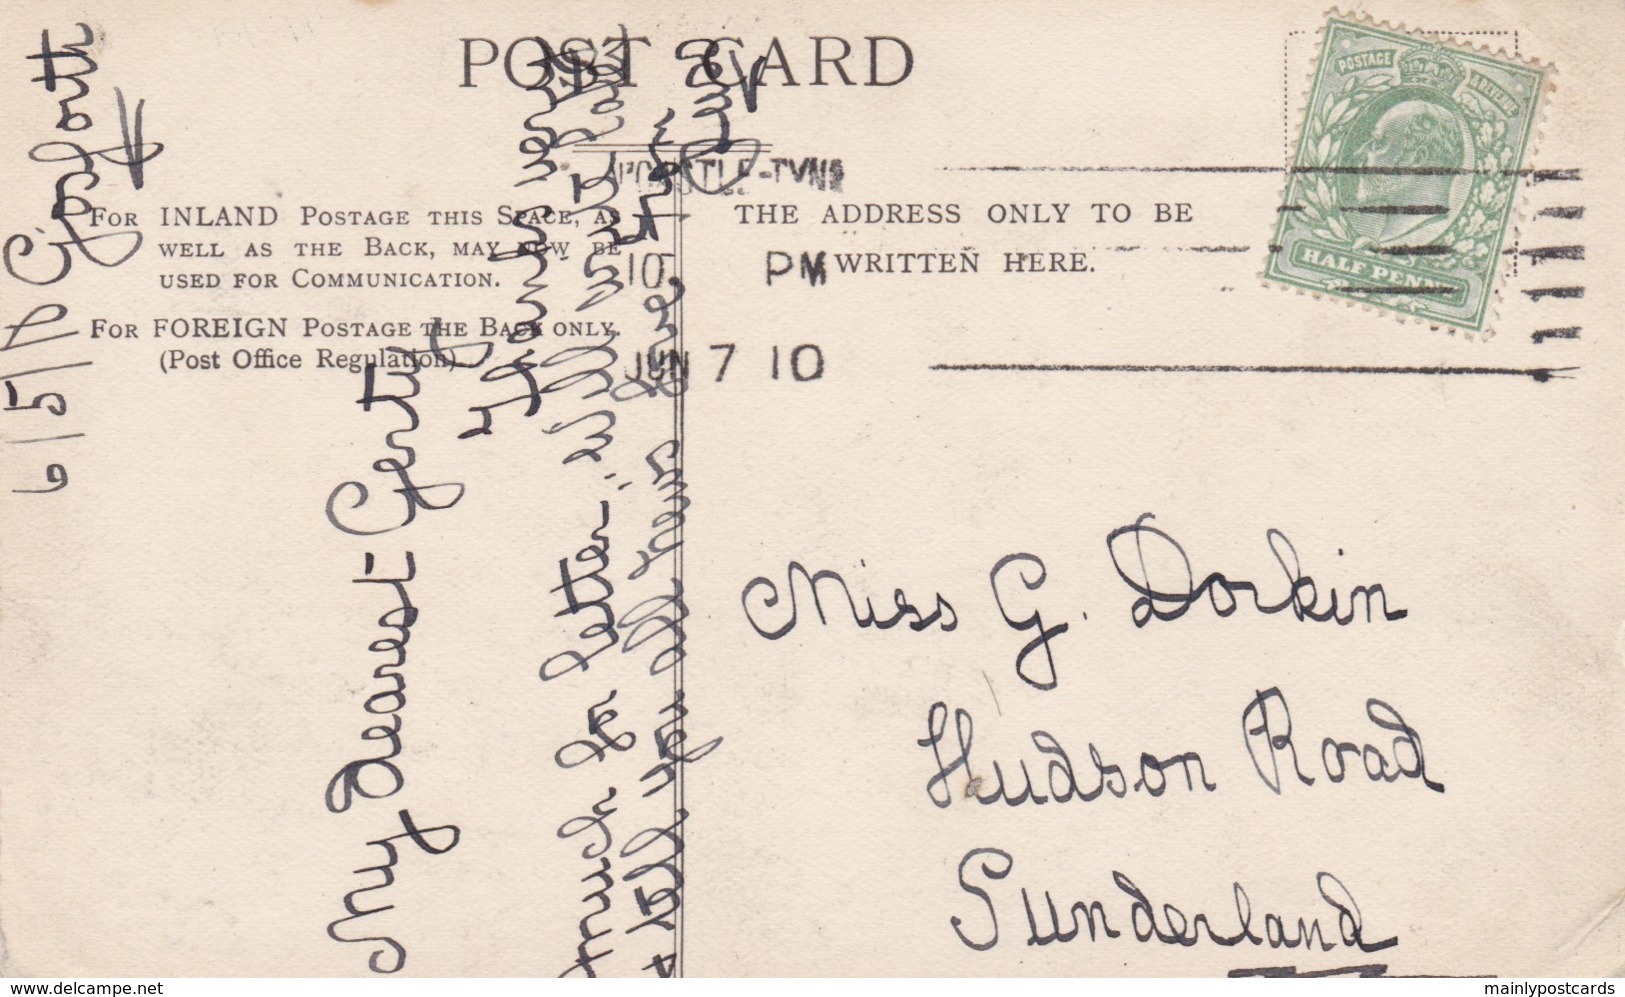 POST CARD
FOR INLAND POSTAGE THIS SPACE, AS
WELL AS THE BACK, MAY NOW BE
USED FOR COMMUNICATION.
FOR FOREIGN POSTAGE THE BACK ONLY.
(Post Office Regulation).
THE ADDRESS ONLY TO BE
WRITTEN HERE.
POSTAGE
HALF PENNY
CASTLE-TYNE
10 PM
JUN 7 10
Gosforth
My dearest Gerty
Thanks very
much for letter, will write later
& tell you all news
Love
Miss G. Dorkin
Hudson Road
Sunderland
www.delcampe.net
mainlypostcards